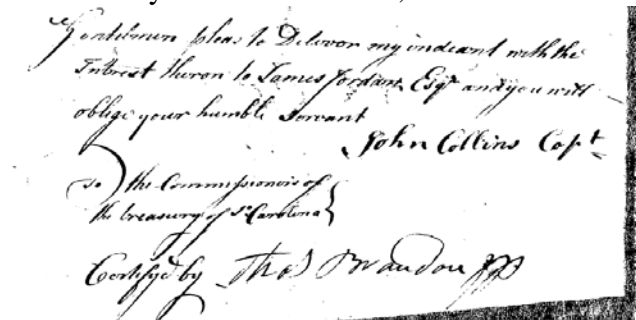 Gentlemen pleas to Delivor my indeant with the
Intrest theron to James Jordant Esqr and you will
oblige your humble Servant
John Collins Capt
To the Commissionors of
the treasury of So Carolina
Certifyd by Thos Brandon JP